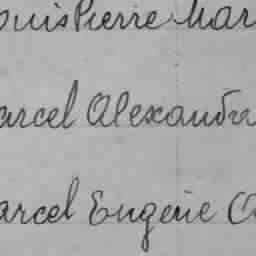 ouis Pierre Mar
arcel Alexandre
arcel Eugène